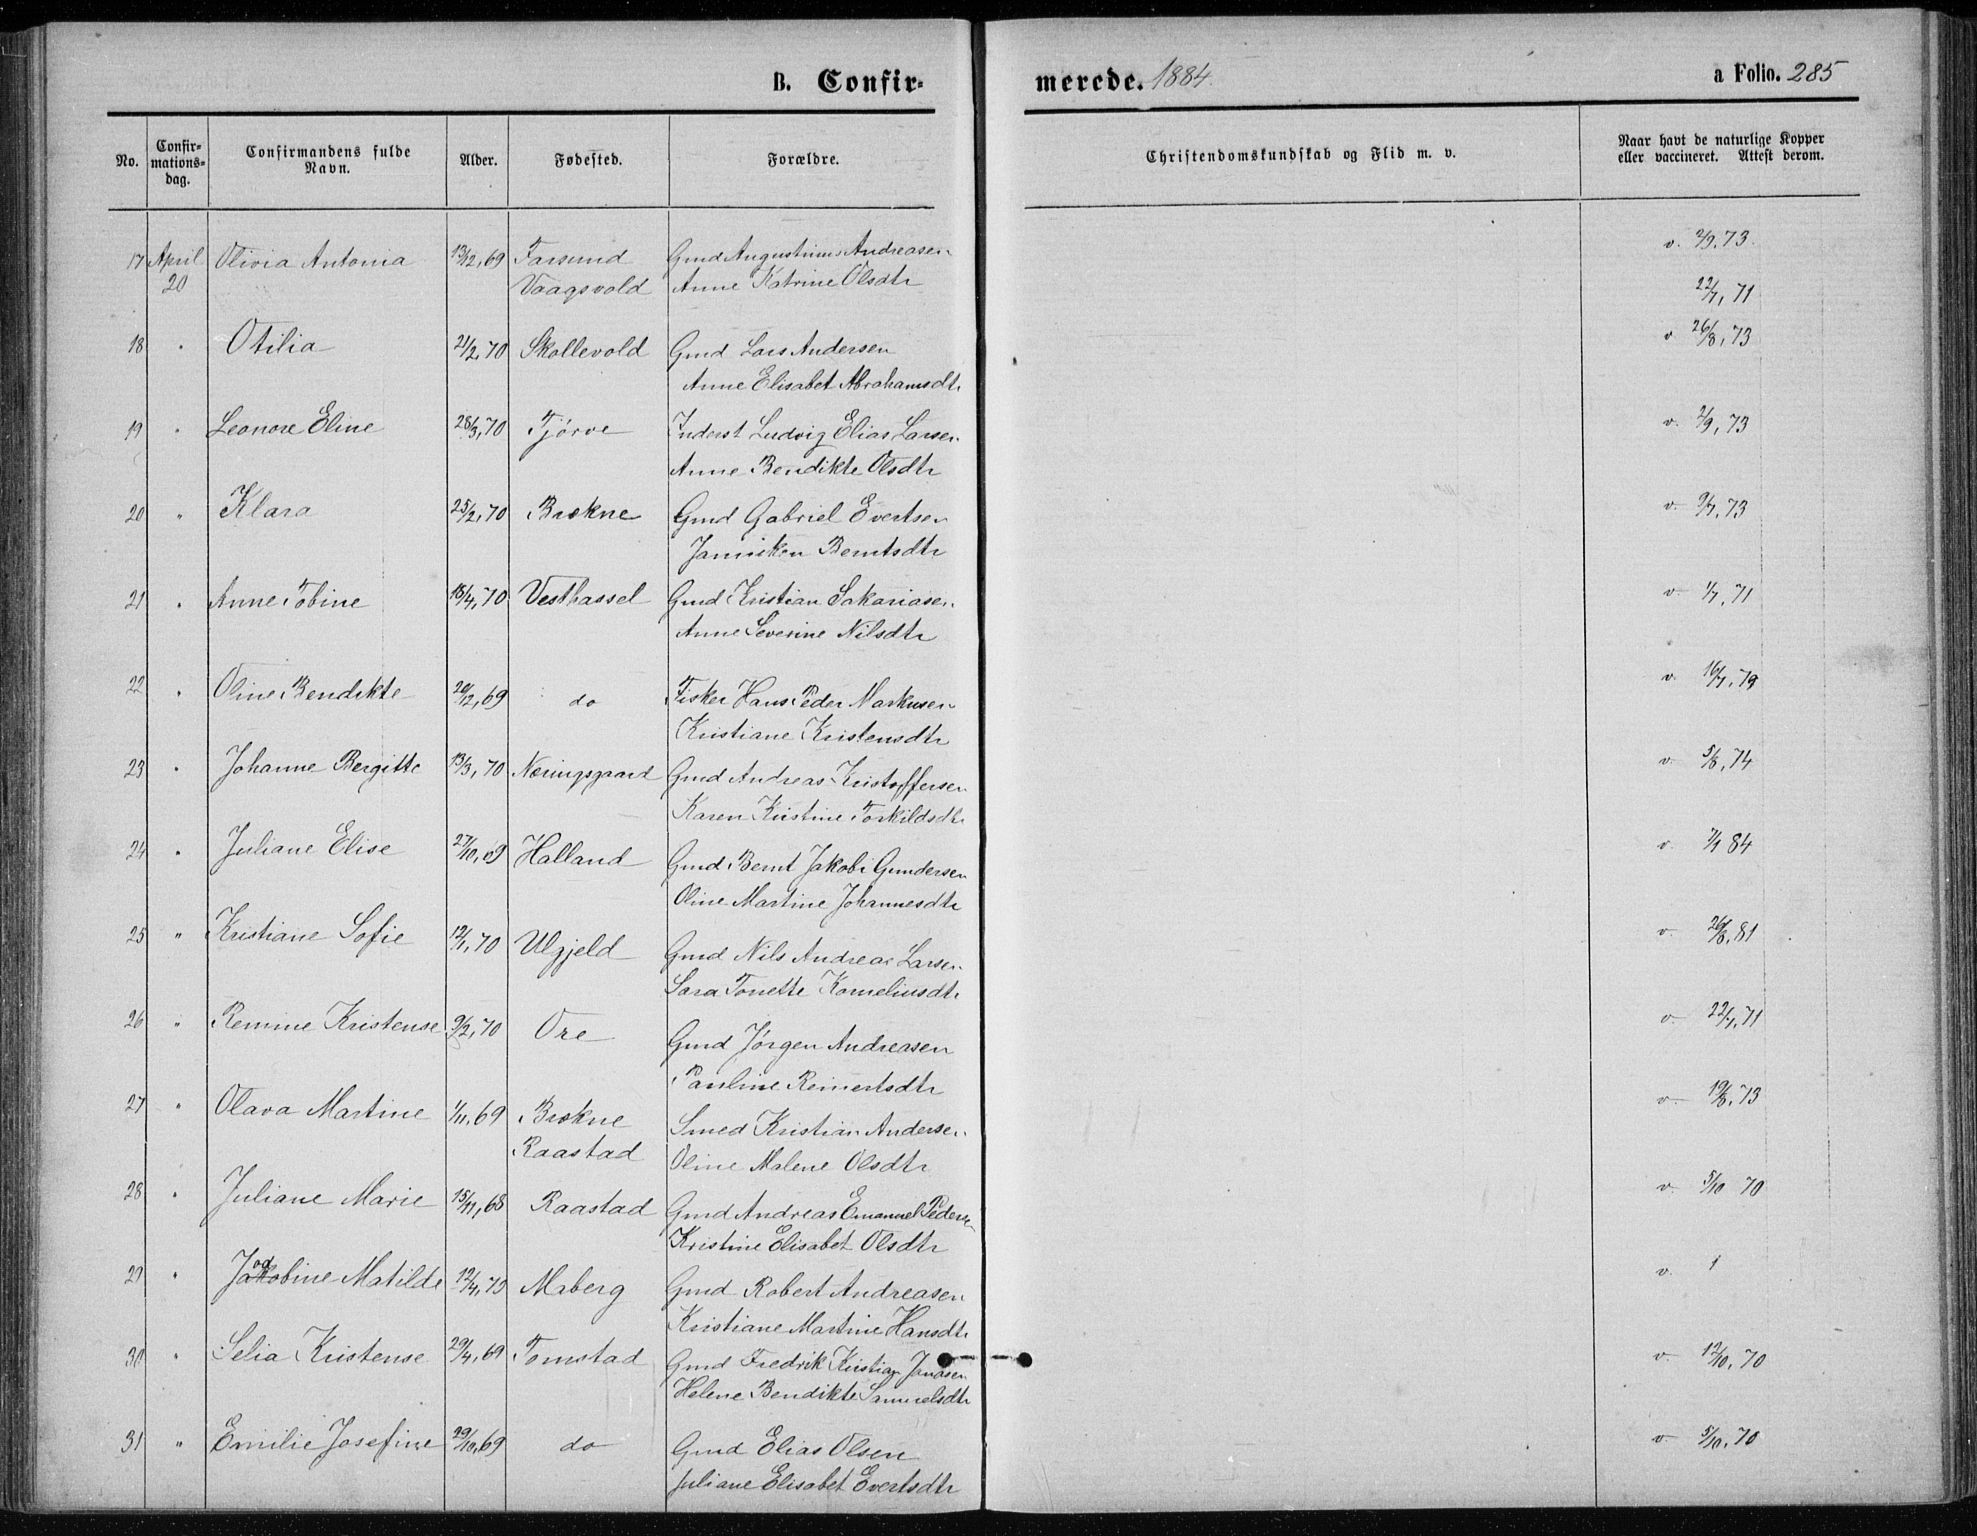 B. Confirmerede. 1884. a Folio. 285
No. Confirmationsdag. Confirmandens fulde Navn. Alder. Fødested. Forældre. Christendomskundskab og Flid m. v. Naar havt de naturlige Kopper eller vaccineret. Attest derom.
17 April Olivia Antonia 13/12,69 Farsund Gmd Augustinus Andreasen v. 2/9,73.
20 Vaagsvold Anne Katrine Olsdtr
22/7,71
18 " Otilia 21/2,70 Skollevold Gmd Lars Andersen v 26/8,73
Anne Elisabet Abrahamsdtr
19 " Leonore Eline 28/3,70 Tjörve Inderst Ludvig Elias Larsen v. 2/9,73
Anne Bendikte Olsdtr
20 " Klara 25/2,70 Brekne Gmd Gabriel Evertsen v. 9/7,73
Jannikken Berntsdtr
21 " Anne Tobine 18/4,70 Vesthassel Gmd Kristian Sakariasen v. 1/7,71
Anne Severine Nilsdtr
22 " Oline Bendikte 20/12,69 do Fisker Hans Peder Markusen v. 16/7,79
Kristiane Kristensdtr
23 " Johanne Bergitte 13/3,70 Neringsgaard Gmd Andreas Kristoffersen v. 5/8,74
Karen Kristine Torkildsdtr
24 " Juliane Elise 27/10,69 Halland Gmd Bernt Jakob Gundersen v. 7/1 84
Oline Martine Johannesdtr
25 " Kristiane Sofie 12/1,70 Ulgjeld Gmd Nils Andreas Larsen v. 26/8,81
Sara Tonette Korneliusdtr
26 " Remine Kristense 9/2,70 Ore Gmd Jörgen Andreasen v. 22/7,71
Pauline Reinertsdtr
27 " Olava Martine 1/11,69 Brekne Smed Kristian Andersen v. 19/8,73
Raastad Oline Malene Olsdtr
28 " Juliane Marie 15/11,68 Raastad Gmd Andreas Emanuel Pedersen v. 5/10 70
Kristine Elisabet Olsdtr
29 " Jakobine Matilde 12/4,70 Maberg Gmd Robert Andreasen v. 1
Kristiane Martine Hansdtr
30 " Selia Kristense 29/4,69 Tomstad Gmd Fredrik Kristian Janasen v. 12/10,70
Helene Bendikte Samuelsdtr
31 " Emilie Josefine 29/10,69 do Gmd Elias Olsen v. 5/10,70
Juliane Elisabet Evertsdtr